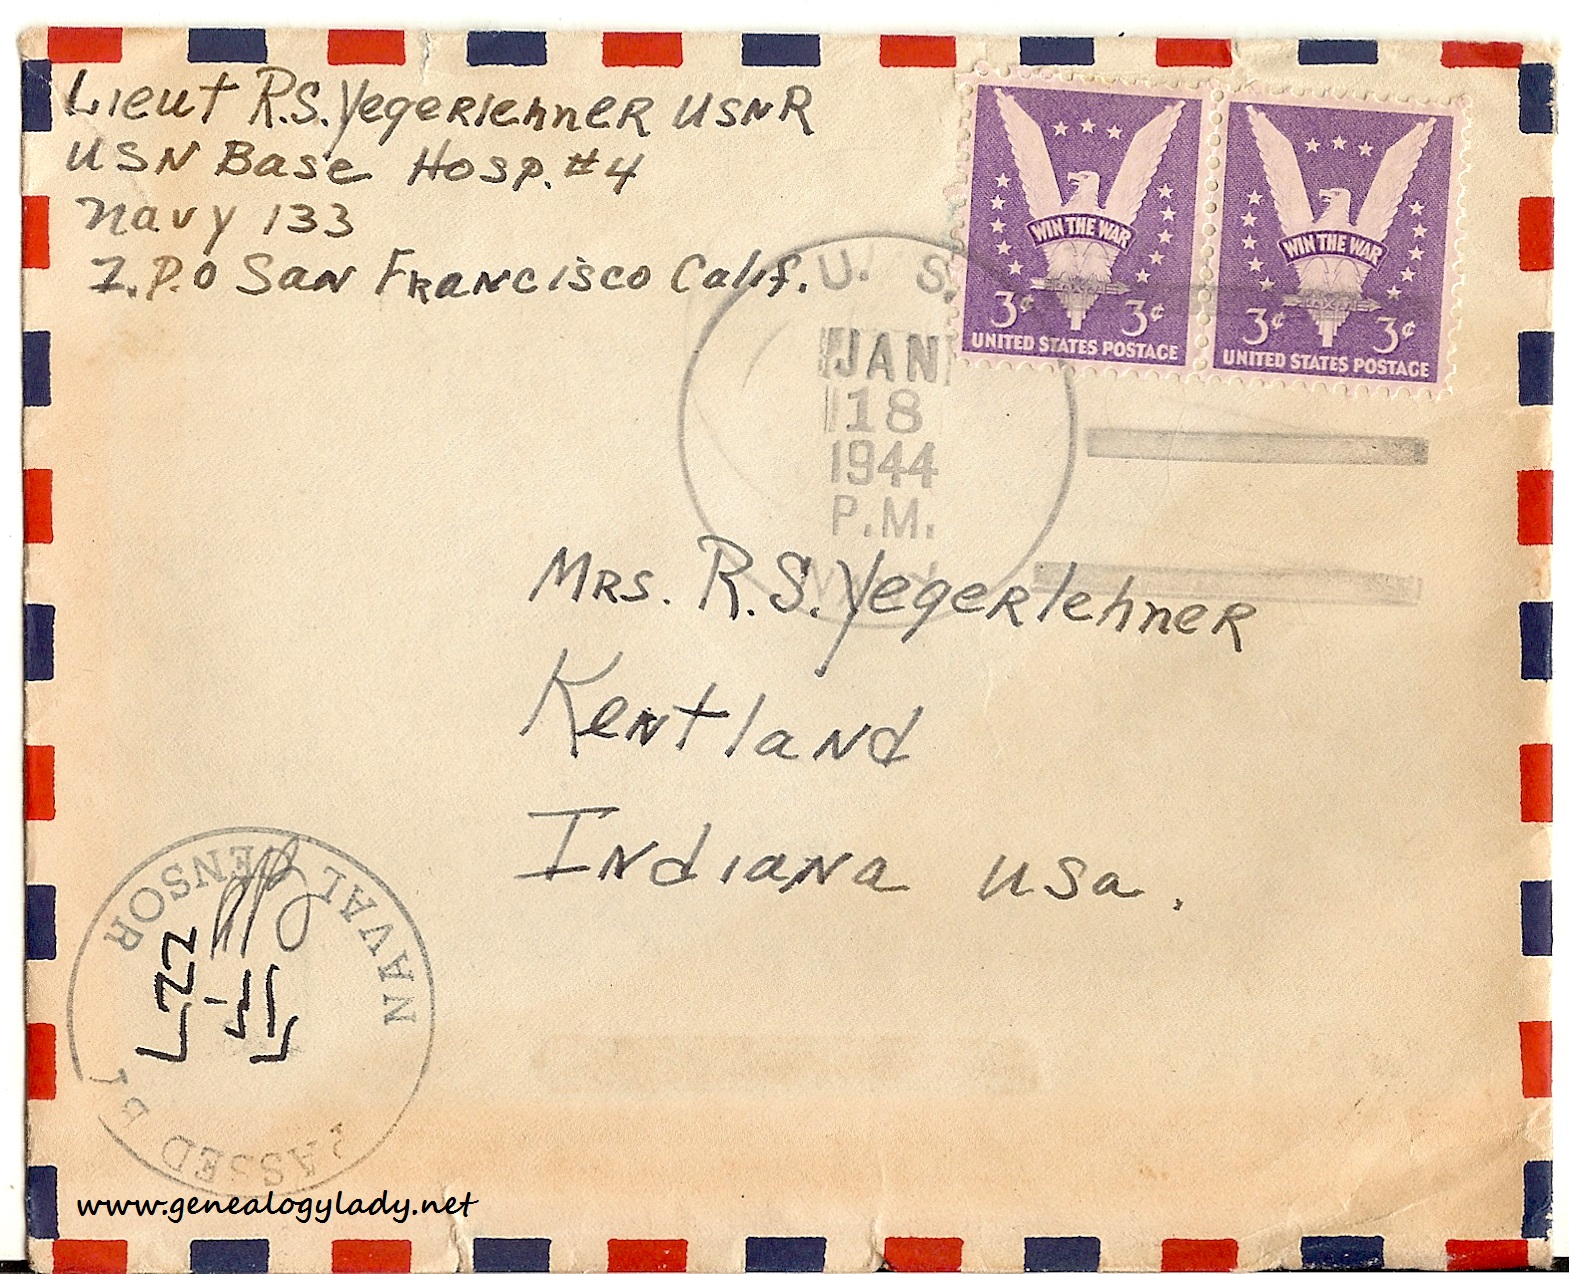 Lieut R.S. Yegerlehner USNR
USN Base Hosp. #4
Navy 133
F.P.O San Francisco Calif.
WIN THE WAR
3¢ 3¢
UNITED STATES POSTAGE
WIN THE WAR
3¢ 3¢
UNITED STATES POSTAGE
U. S.
JAN
18
1944
P.M.
Mrs. R.S. Yegerlehner
Kentland
Indiana USA.
PASSED BY
NAVAL CENSOR
www.genealogylady.net